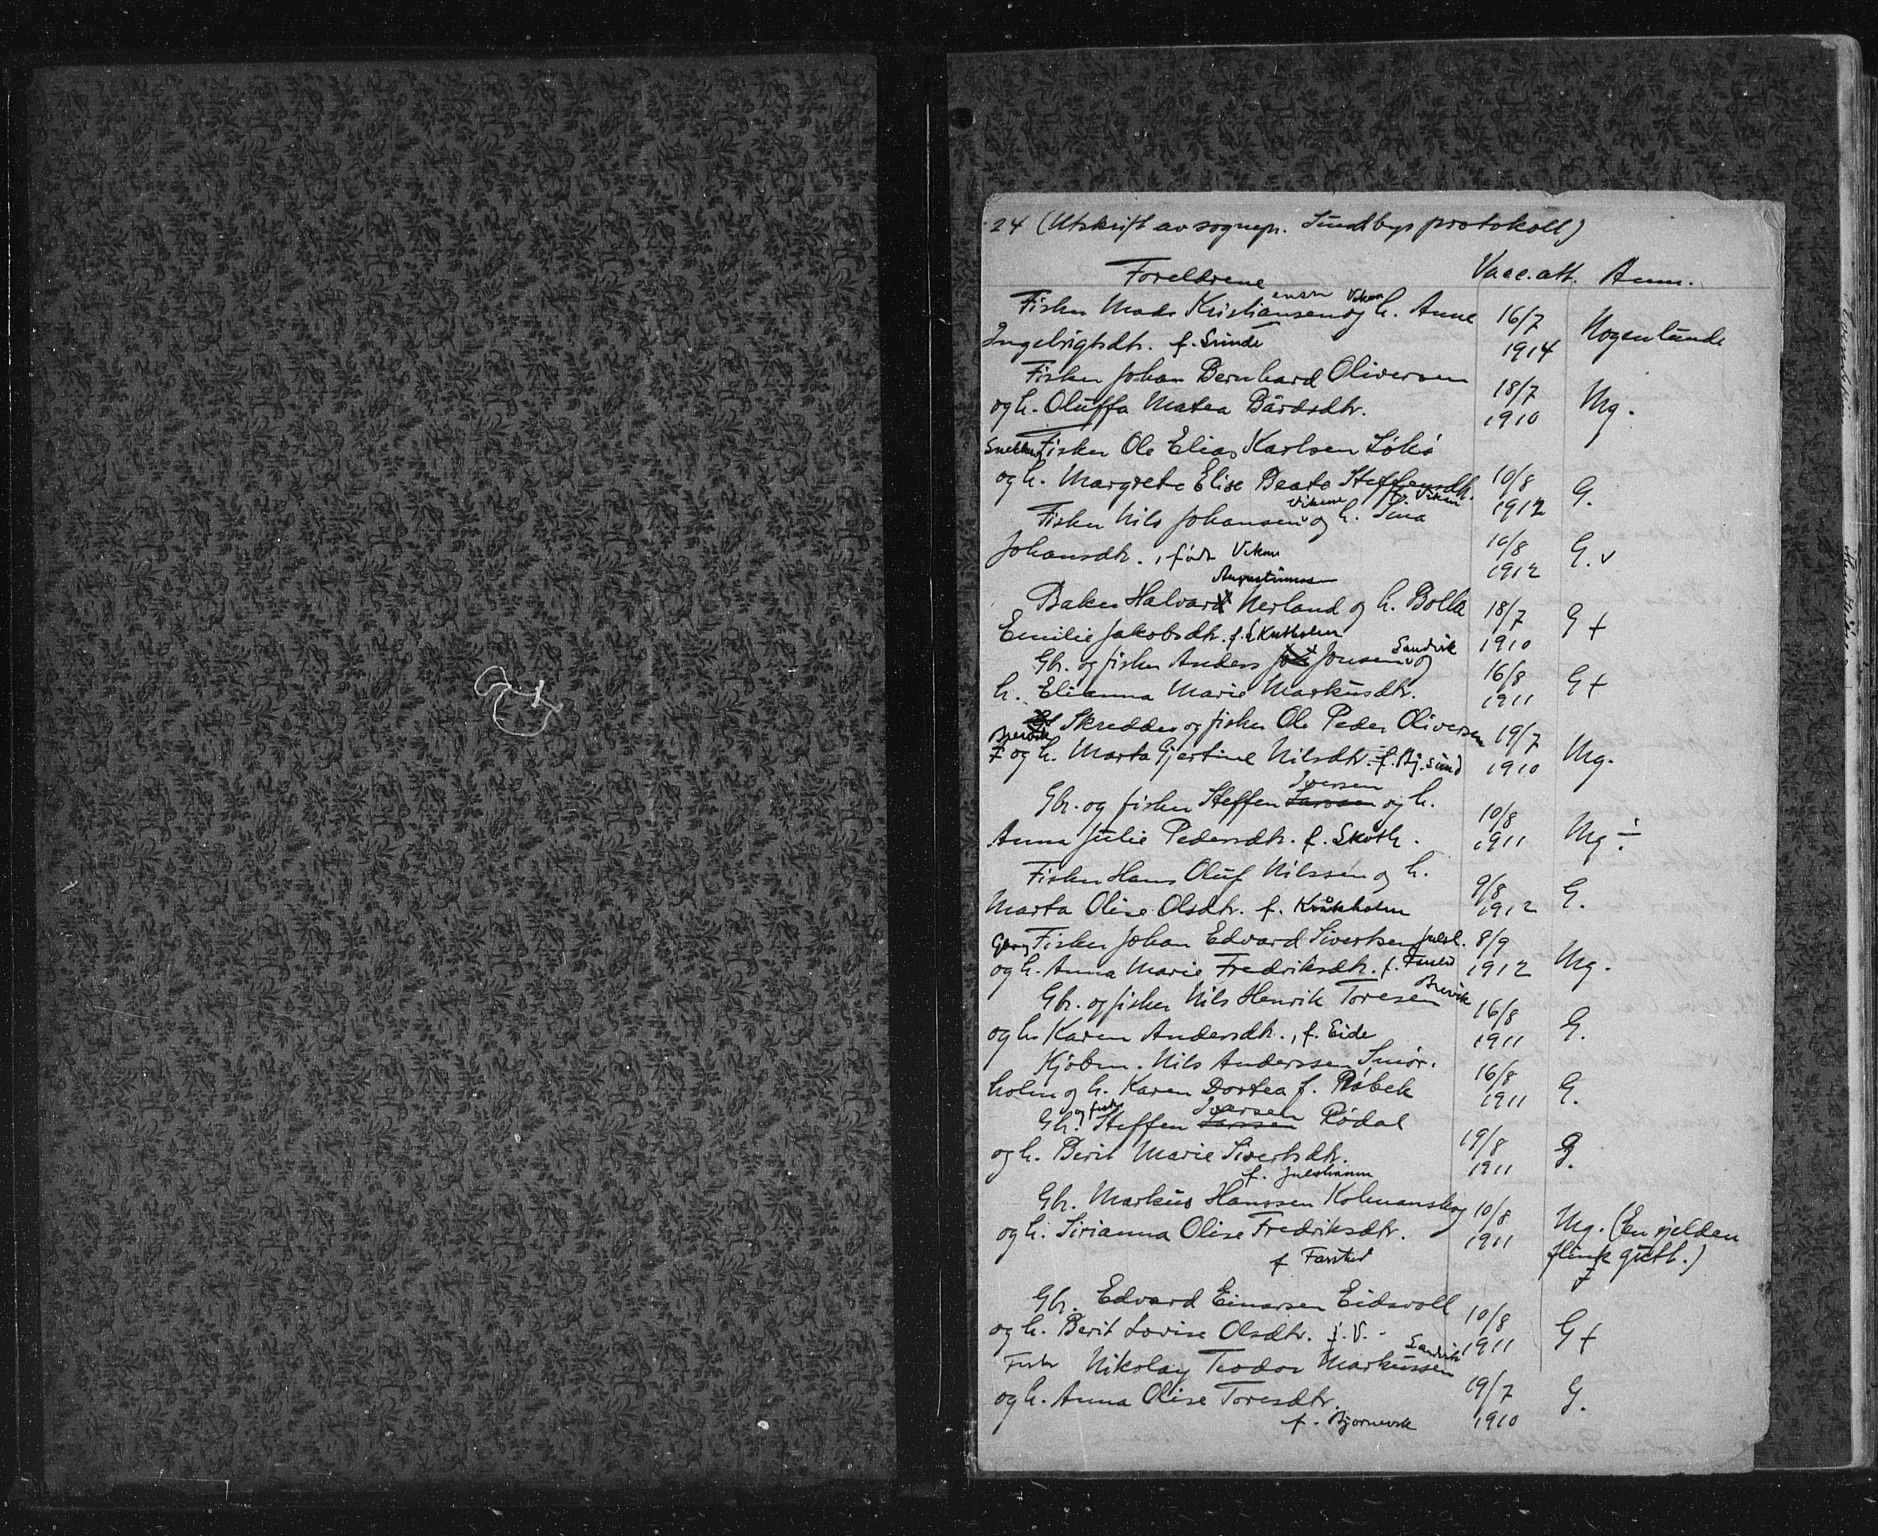 24 (Utskrift av sognepr. Sundbys protokoll)
Foreldrene Vacc.att. Anm.
Fisker Mads Kristiansen og h. Anne 16/7
Ingebrigtsdtr. f. Sunde 1914 Nogenlunde
Fisker Johan Bernhard Oliversen 18/7
og h. Oluffa Matea Bårdsdtr. 1910 Mg.
Snekker Fisker Ole Elias Karlsen
og h. Margrete Elise Beate Steffensdtr. 10/8 G.
Viken f. Viken
Fisker Nils Johansen og h. 1912
Johansdtr., født Viken 10/8 G. v
1912
Augustinussen
Baker Halvard Nerland og h. Bolla 18/7 G +
Emilie Jakobsdtr. f. Skutholm 1910
Gbr. og fisker Anders Jonsen Sandvik og 16/8 G +
h. Elianna Marie Markusdtr. 1911
Skredder og fisker Ole Peder Oliversen 19/7
og h. Marta Gjertine Nilsdtr. f. Bj.sund 1910 Mg.
Iversen
Gbr. og fisker Steffen Larssen og h. 10/8
Anna Julie Pedersdtr. f. 1911 Mg ÷
Fisker Hans Oluf Nilssen og h. 9/8 G.
Marta Olise Olsdtr. f. 1912
Fisker Johan Edvard Sivertsen Julsl. 8/9
og h. Anna Marie Fredriksdtr. f. 1912 Mg.
Brevik
Gbr. og fisker Nils Henrik Toresen 16/8
og h. Karen Andersdtr., f. Eide 1911 G.
Kjøbm. Nils Anderssen Smør- 16/8
holm og h. Karen Dortea f. Røbek 1911 G.
og fisker Iversen
Gbr. Steffen Larssen Rødal 19/8
og h. Berit Marie Sivertsdtr. 1911 G.
f. Julshamn
Gbr. Markus Hanssen Kolmanskog 10/8
og h. Sirianna Olise Fredriksdtr. 1911 Mg. (En sjelden
f Farstad flink gutt.)
Gbr. Edvard Einarsen Eidsvoll 10/8
og h. Berit Lovise Olsdtr. 1911 G +
Sandvik
Fisker Nikolay Teodor Markussen 19/7
og h. Anna Olise Toresdtr. 1910 G.
f. Bjørnevik